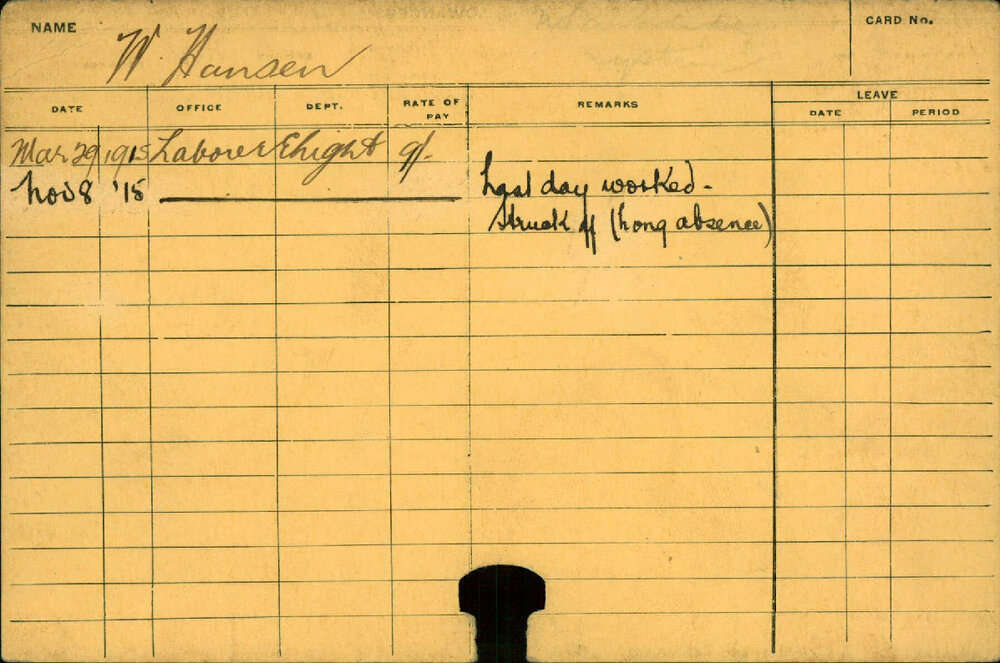 NAME W. Hansen CARD No.
DATE OFFICE DEPT. RATE OF PAY REMARKS LEAVE
DATE PERIOD
Mar 29 1915 Laborer Elight 9/-
Nov 8 '15 Last day worked -
Struck off (Long absence)